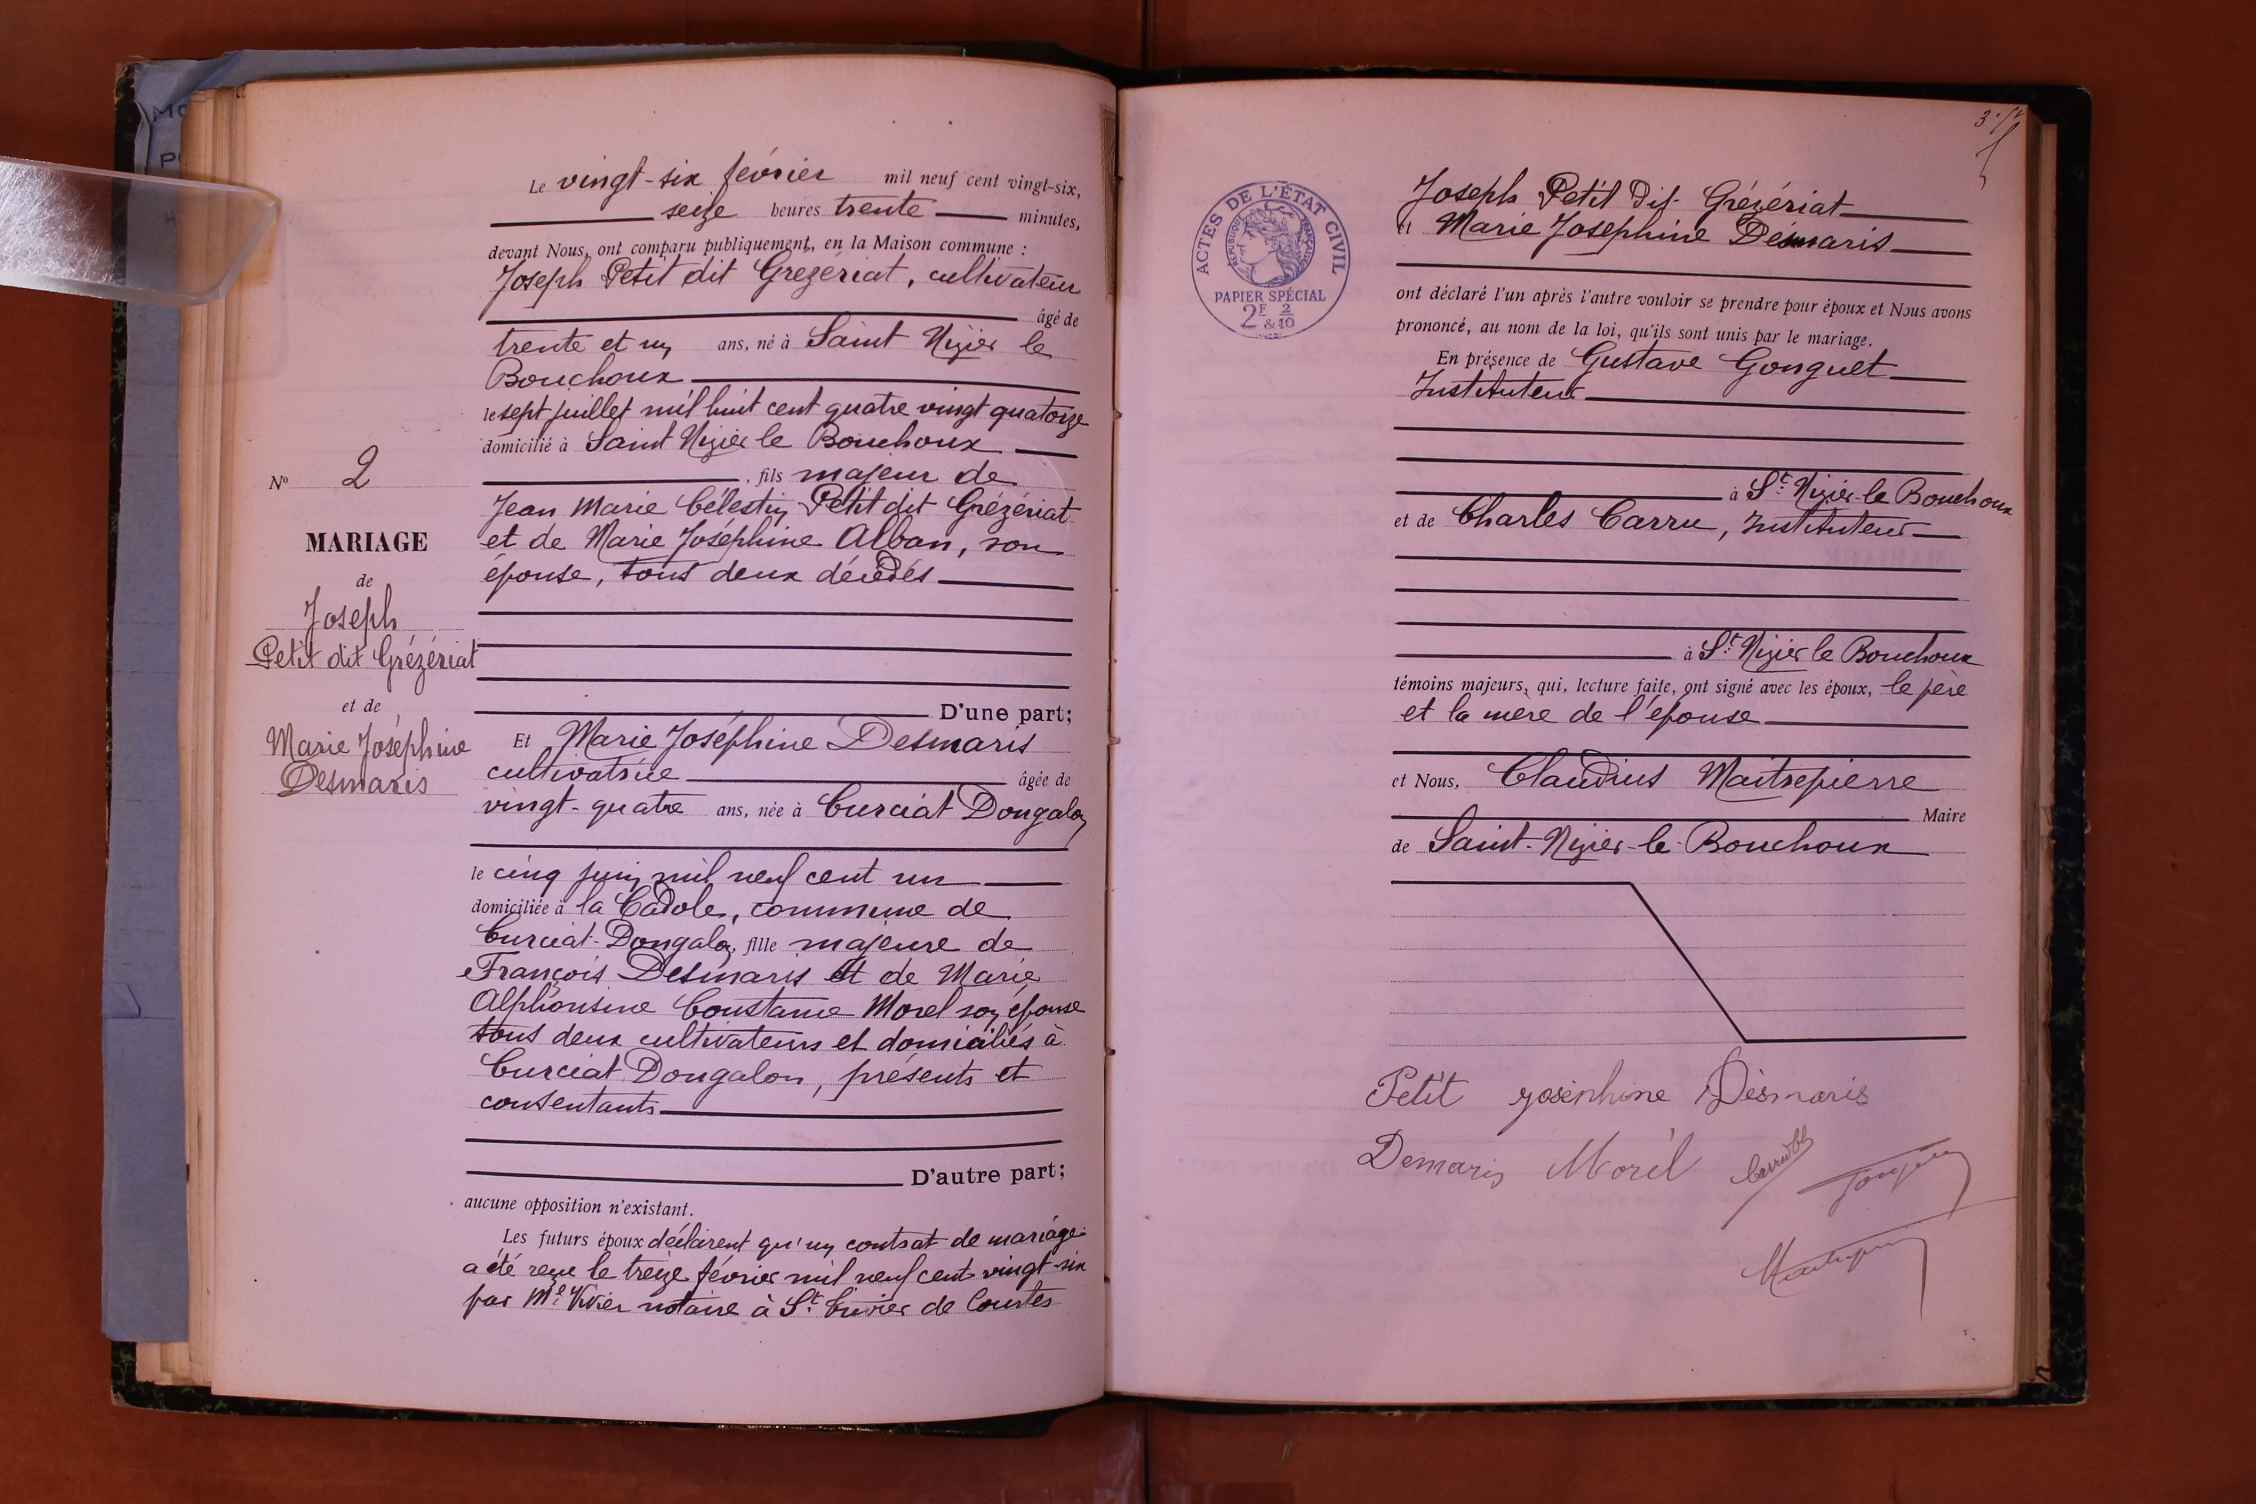 Le vingt-six février mil neuf cent vingt-six,
seize heures trente minutes,
devant Nous, ont comparu publiquement, en la Maison commune :
Joseph Petit dit Grézériat, cultivateur
âgé de
trente et un ans, né à Saint Nizier le
Bouchoux
le sept juillet mil huit cent quatre vingt quatorze
domicilié à Saint Nizier le Bouchoux
, fils majeur de
Jean Marie Célestin Petit dit Grézériat
et de Marie Joséphine Alban, son
épouse, tous deux décédés
D'une part;
Et Marie Joséphine Desmaris
cultivatrice âgée de
vingt-quatre ans, née à Curciat Dongalon
le cinq juin mil neuf cent un
domiciliée à la Cadole, commune de
Curciat-Dongalon, fille majeure de
François Desmaris et de Marie
Alphonsine Constance Morel son épouse
tous deux cultivateurs et domiciliés à
Curciat Dongalon, présents et
consentants
D'autre part;
aucune opposition n'existant.
Les futurs époux déclarent qu'un contrat de mariage
a été reçu le treize février mil neuf cent vingt-six
par Me Vivier notaire à St Trivier de Courtes
No 2
MARIAGE
de
Joseph
Petit dit Grézériat
et de
Marie Joséphine
Desmaris
ACTES DE L'ÉTAT CIVIL
RÉPUBLIQUE FRANÇAISE
PAPIER SPÉCIAL
2F & 2/10
Joseph Petit Dit Grézériat
Marie Josephine Desmaris
ont déclaré l'un après l'autre vouloir se prendre pour époux et Nous avons
prononcé, au nom de la loi, qu'ils sont unis par le mariage.
En présence de Gustave Gonguet
Instituteur
à St Nizier-le Bouchoux
et de Charles Carru, Instituteur
à St Nizier le Bouchoux
témoins majeurs, qui, lecture faite, ont signé avec les époux, le père
et la mère de l'épouse
et Nous, Claudius Maitrepierre
Maire
de Saint-Nizier-le-Bouchoux
Petit Josephine Desmaris
Demaris Morel